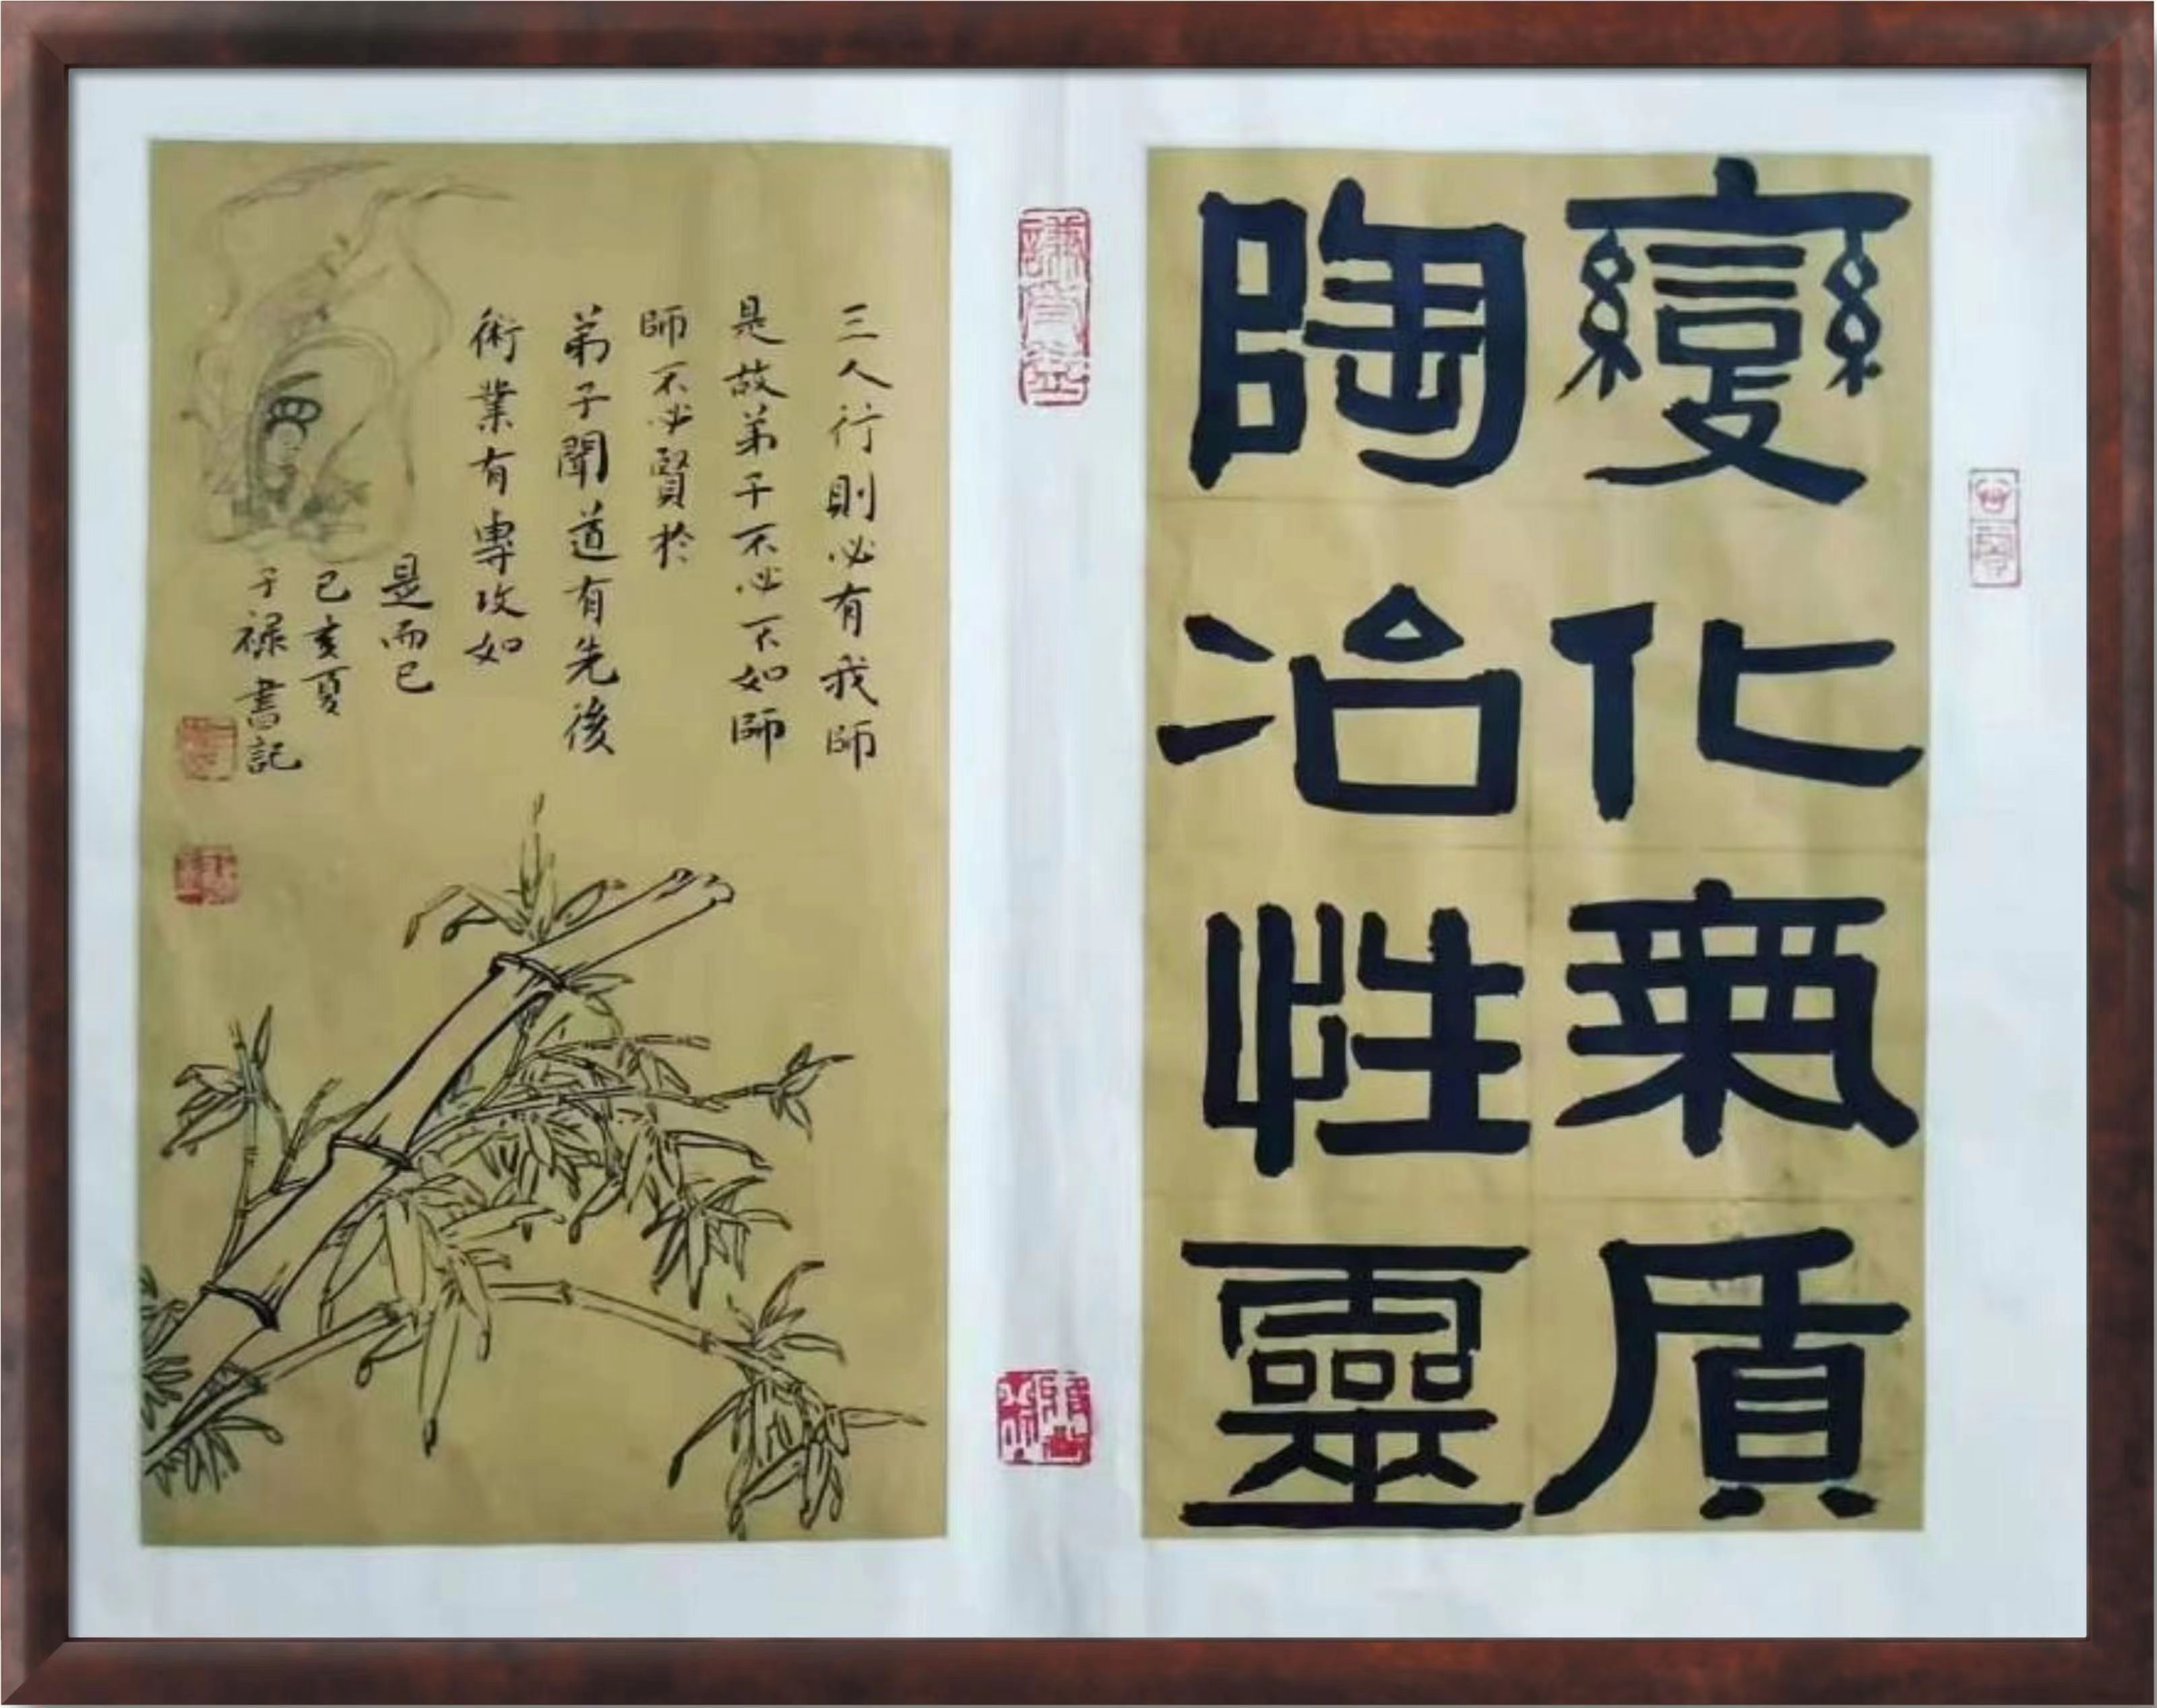 變化氣質
陶冶性靈
謙受益
三人行則必有我師
是故弟子不必不如師
師不必賢於
弟子聞道有先後
術業有專攻如
是而已
己亥夏
子禄書記